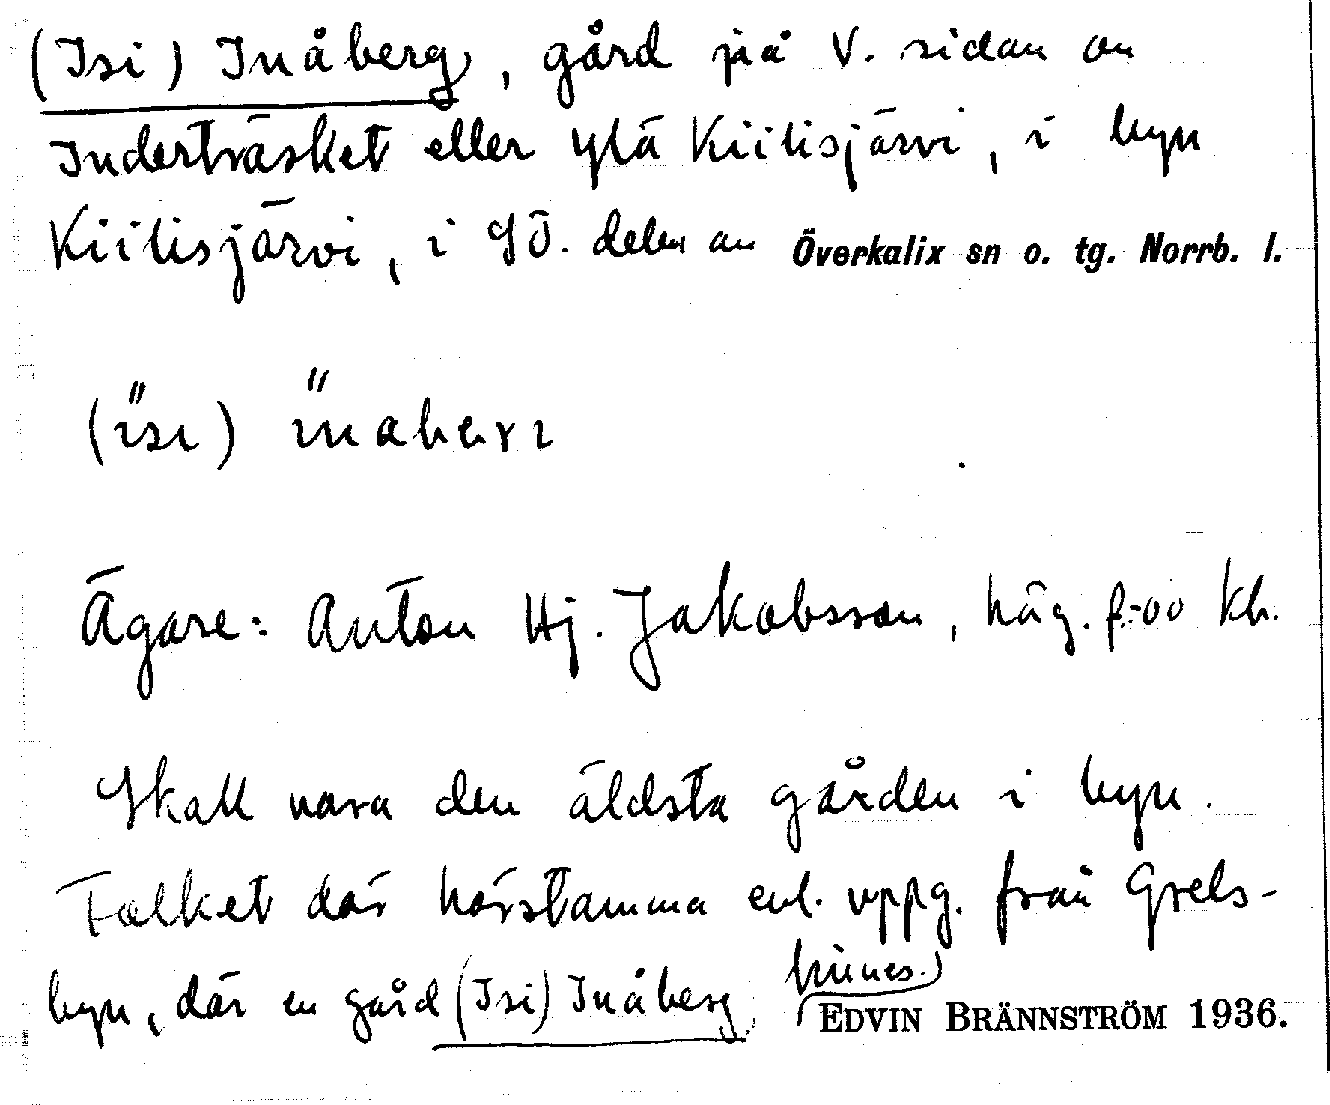 (Isi) Inåberg, gård på V. sidan av
Inderträsket eller Ylä Kiilisjärvi, i byn
Kiilisjärvi, i SÖ. delen av Överkalix sn o. tg. Norrb. l.
Ägare: Anton Hj. Jakobsson, häg. f. 00 Kh.
Skall vara den äldsta gården i byn.
Folket där härstamma enl. uppg. från Grels-
byn, där en gård (Isi) Inåberg finnes.
EDVIN BRÄNNSTRÖM 1936.